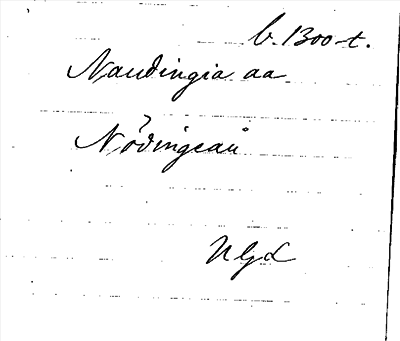 b. 1300-t.
Naudingia aa
Nödingeån
NgL